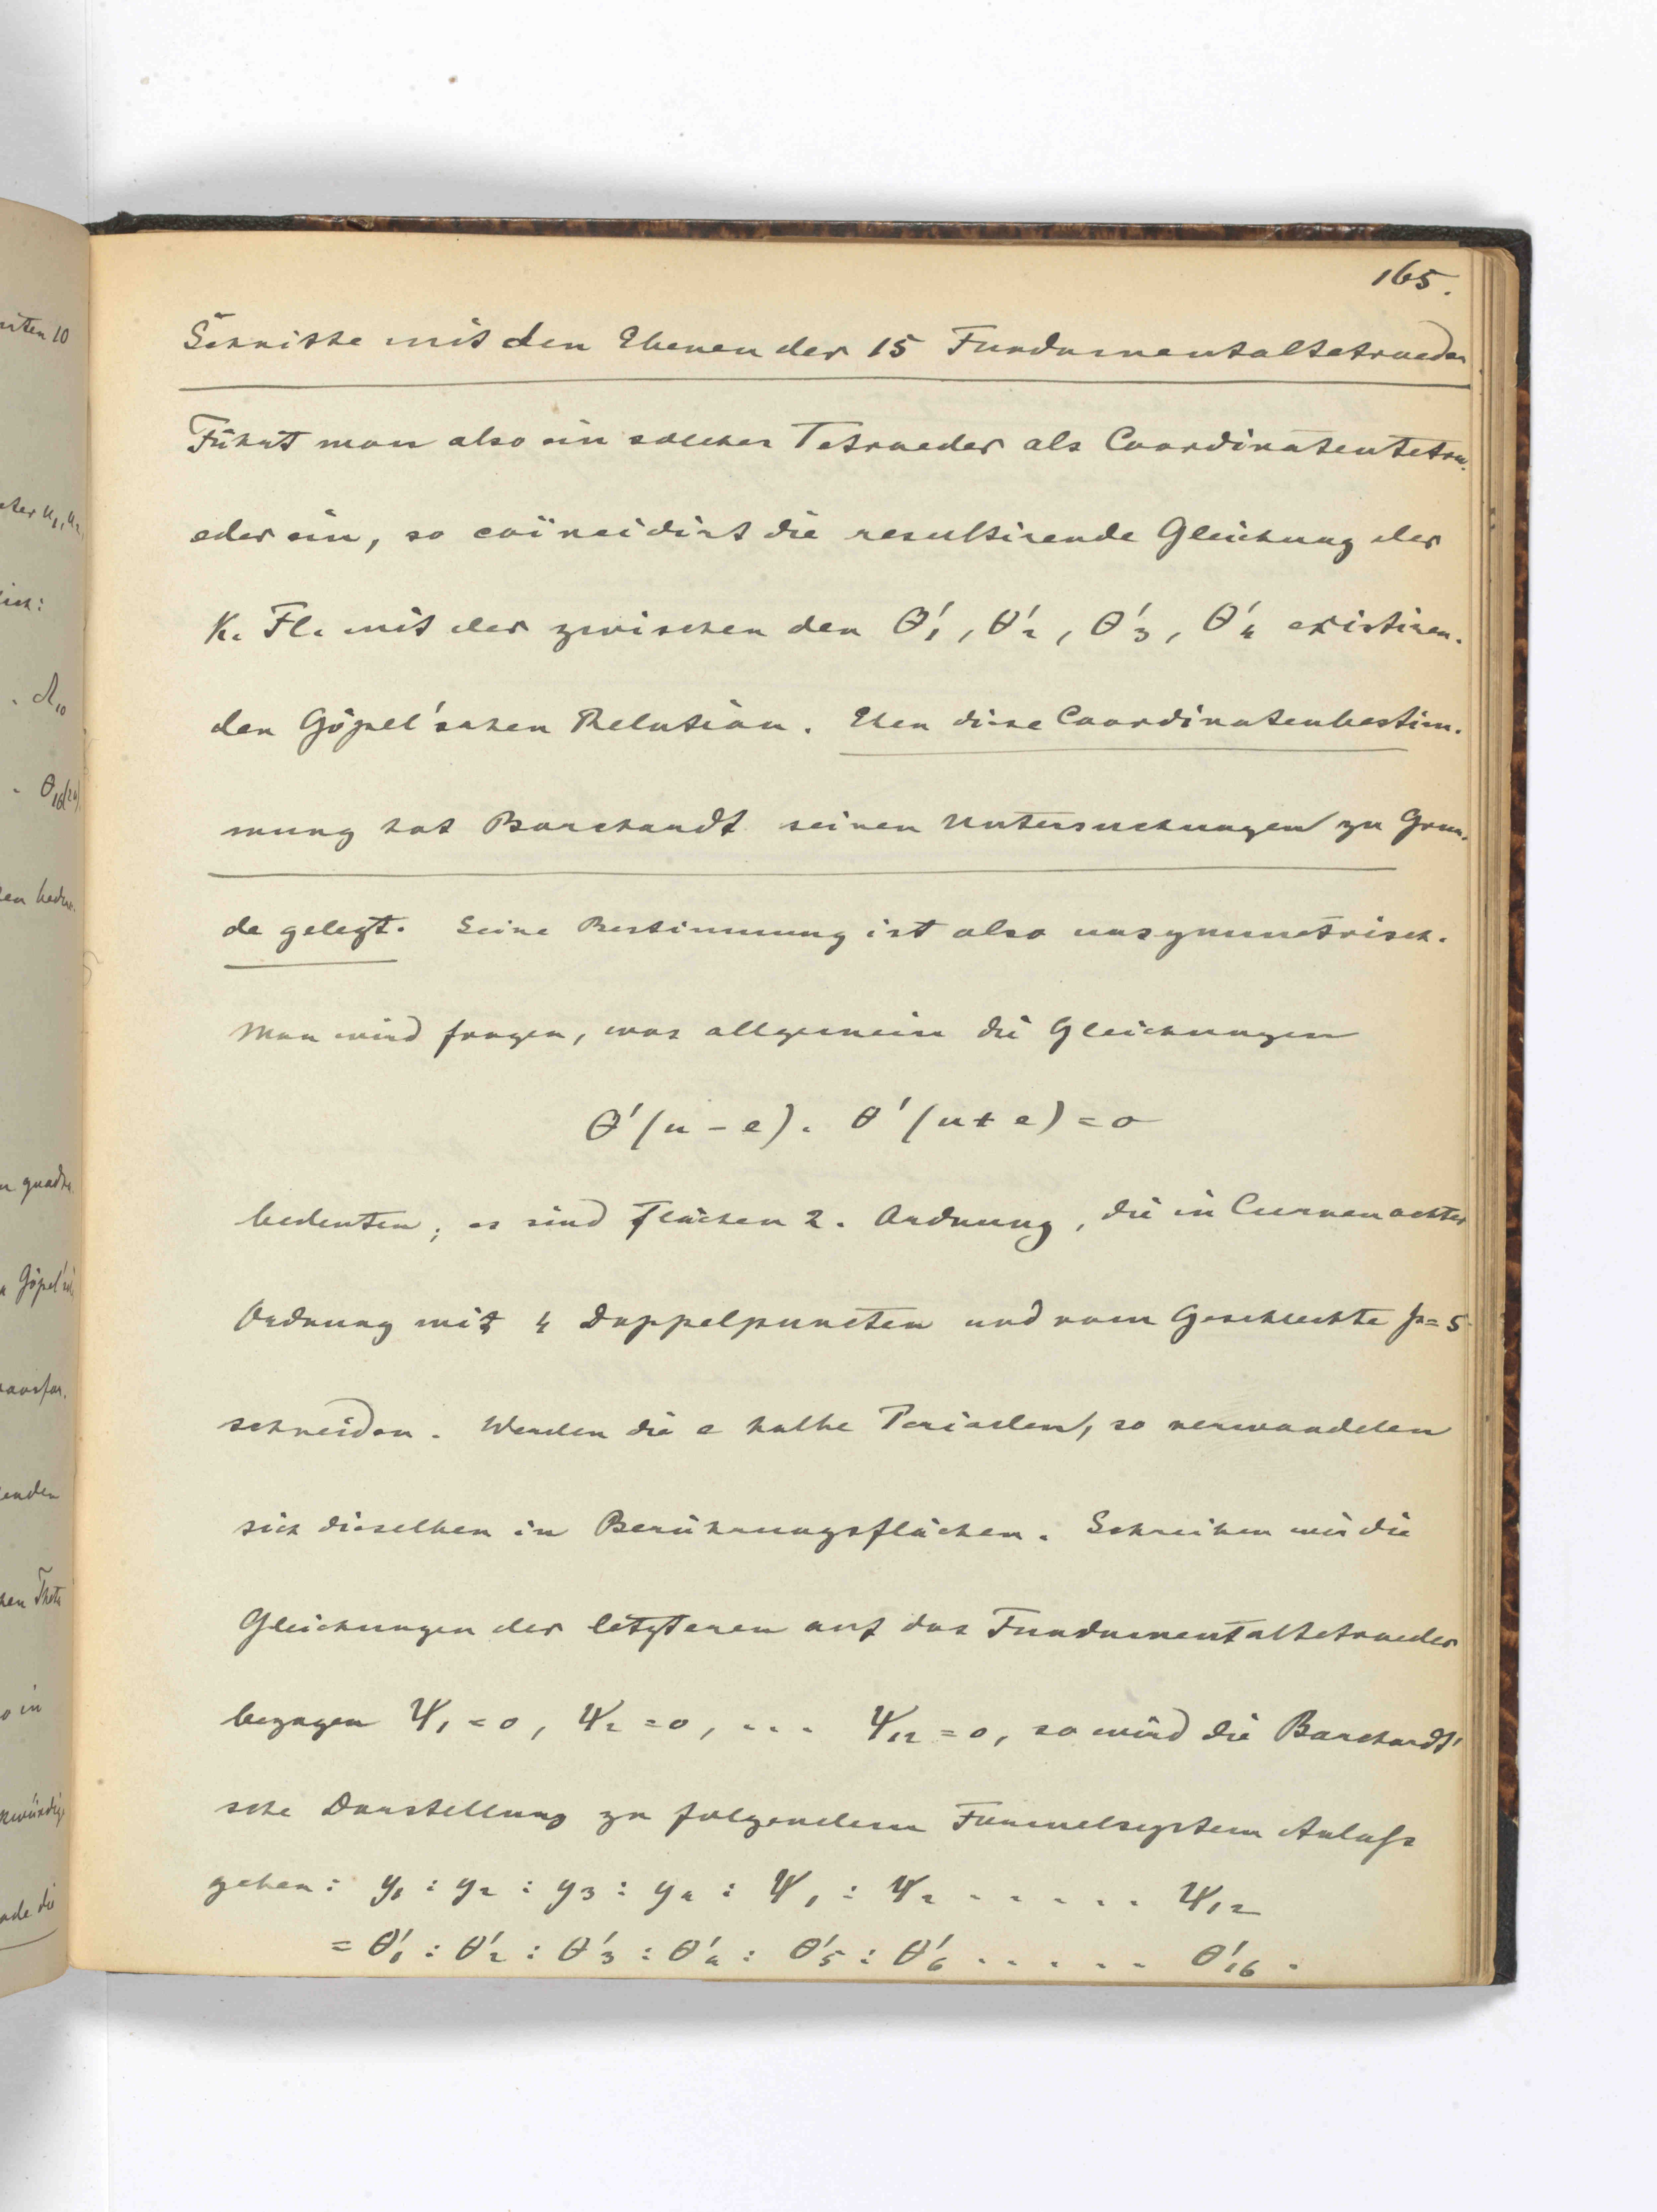 165.
Schnitte mit den Ebenen der 15 Fundamentaltetraeder
Führt man also ein solches Tetraeder als Coordinatentetra-
eder ein, so coïncidirt die resultirende Gleichung der
K. Fl. mit der zwischen den θ'₁, θ'₂, θ'₃, θ'₄ existiren-
den Göpel'schen Relation. Eben diese Coordinatenbestim-
mung hat Borchardt seinen Untersuchungen zu Grun-
de gelegt. Seine Bestimmung ist also unsymmetrisch.
Man wird fragen, was allgemein die Gleichungen
θ'(u - e). θ'(u + e) = 0
bedeuten; es sind Flächen 2. Ordnung, die in Curven achter
Ordnung mit 4 Doppelpuncten und vom Geschlechte p = 5
schneiden. Werden die e halbe Perioden, so verwandeln
sich dieselben in Berührungsflächen. Schreiben wir die
Gleichungen der letzteren auf das Fundamentaltetraeder
bezogen Ψ₁ = 0, Ψ₂ = 0, ... Ψ₁₂ = 0, so wird die Borchardt'
sche Darstellung zu folgendem Formelsystem Anlaß
geben: y₁ : y₂ : y₃ : y₄ : Ψ₁ : Ψ₂ ...... Ψ₁₂
= θ'₁ : θ'₂ : θ'₃ : θ'₄ : θ'₅ : θ'₆ ...... θ'₁₆ .